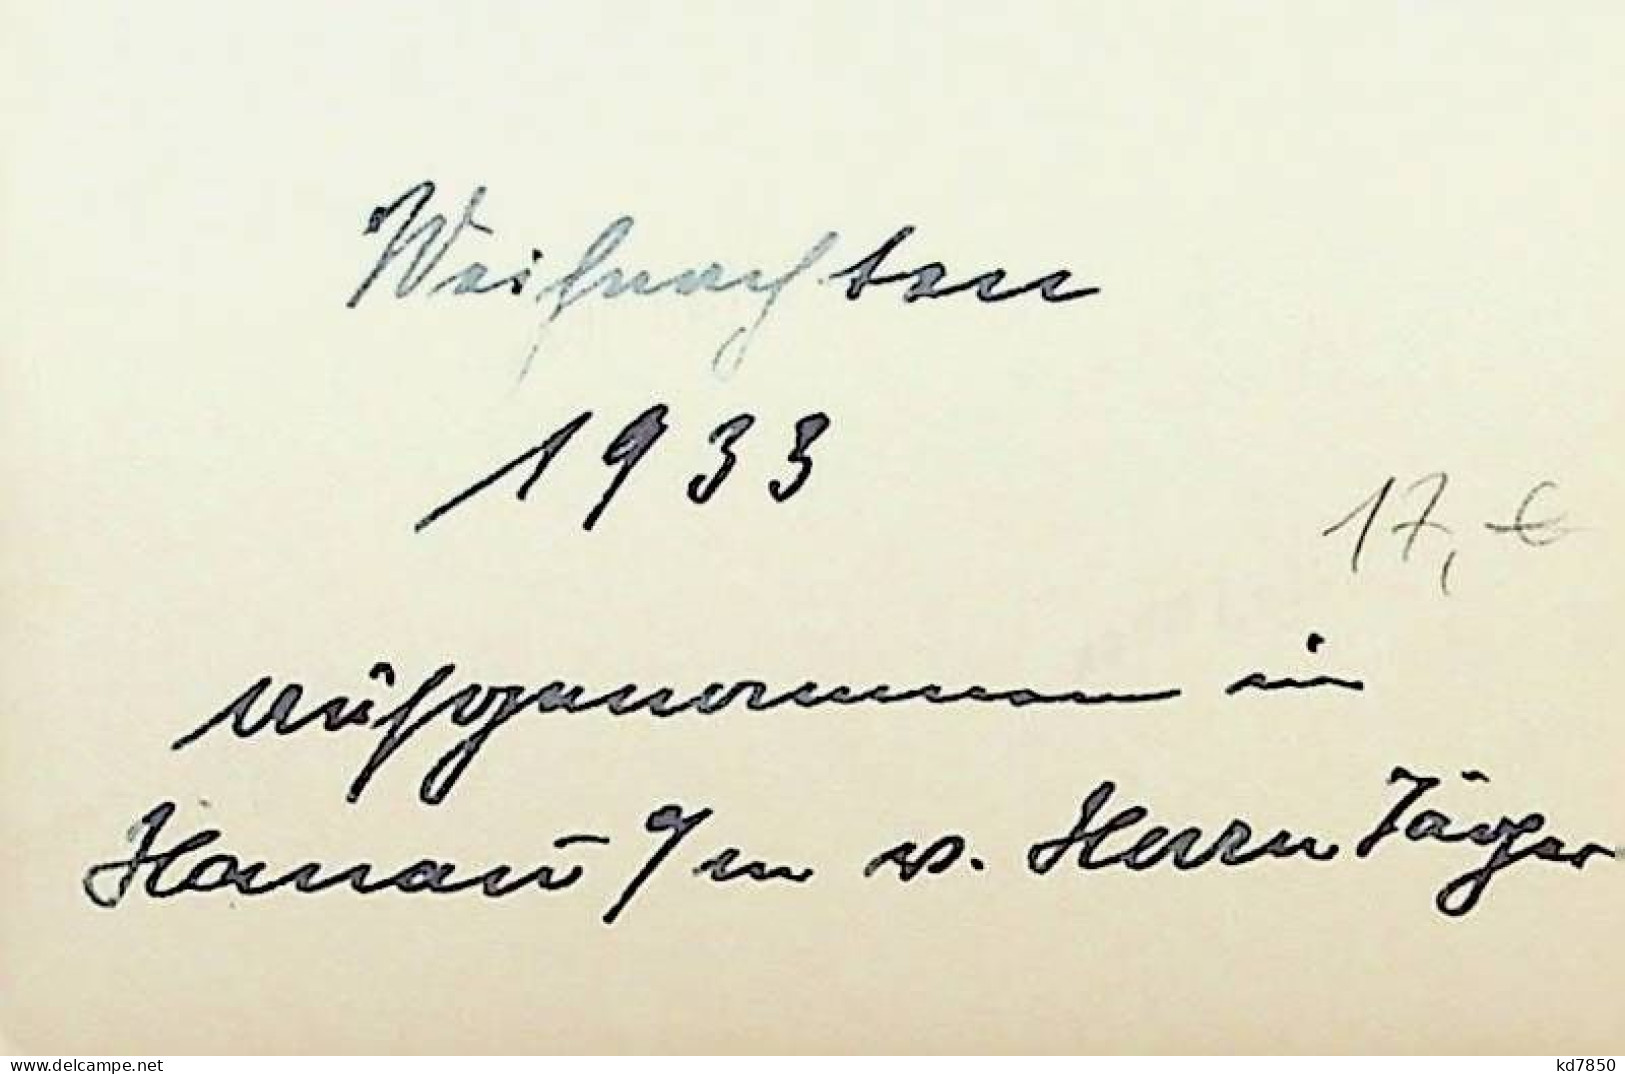 Weihnachten
1933
17,-€
aufgenommen in
Hanau a/m v. Herrn Jäger
www.delcampe.net
kd7850